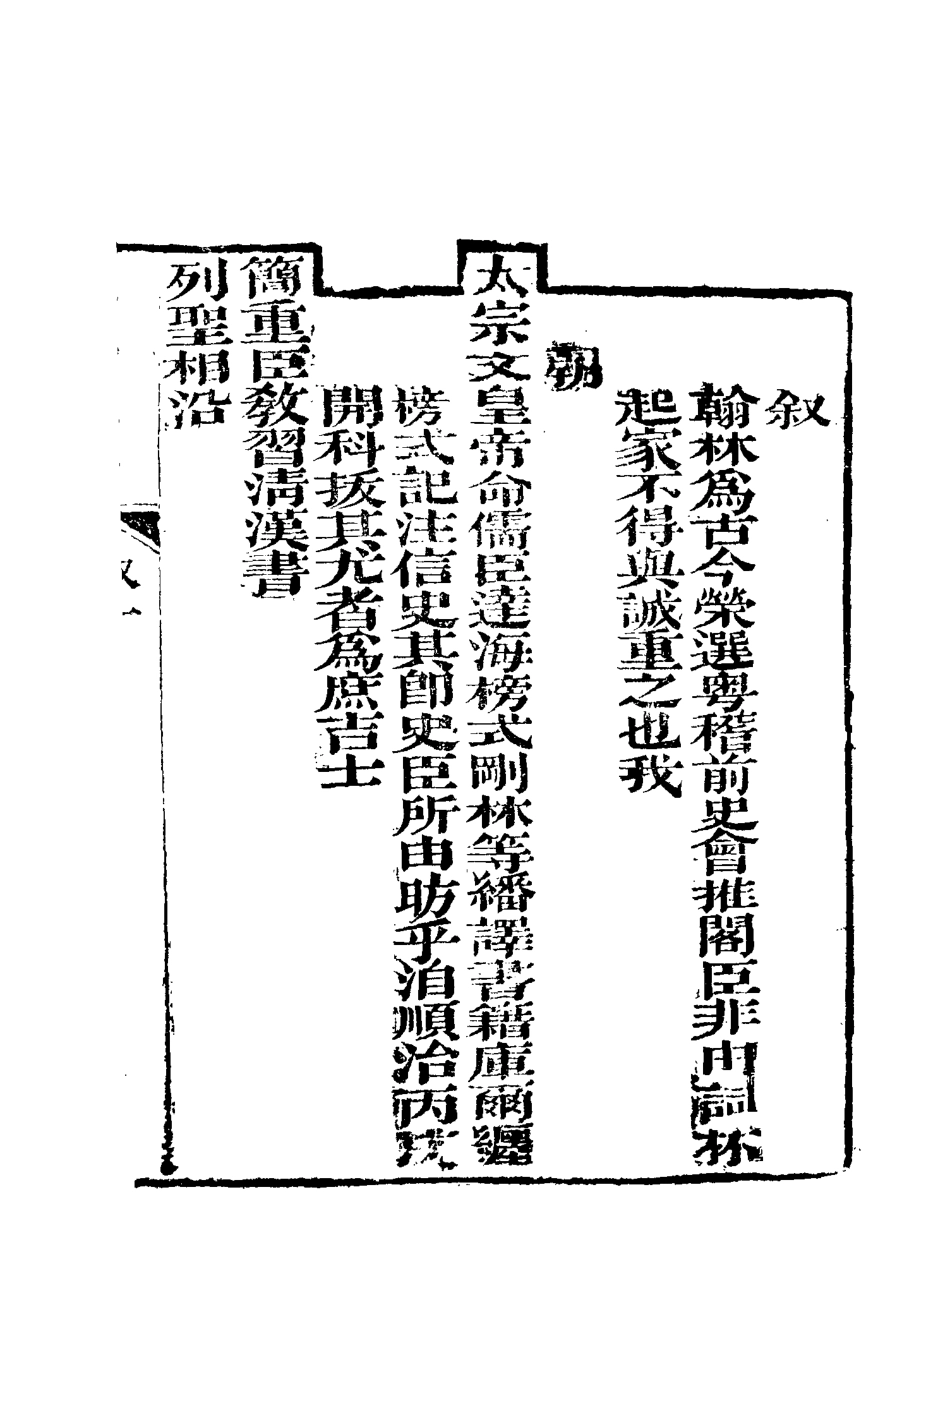 叙
翰林爲古今榮選粤稽前史會推閣臣非由詞林
起家不得與誠重之也我
朝
太宗文皇帝命儒臣達海榜式剛林等繙譯書籍庫爾纏
榜式記注信史其卽史臣所由昉乎洎順治丙戌
開科拔其尤者爲庶吉士
簡重臣教習淸漢書
列聖相沿